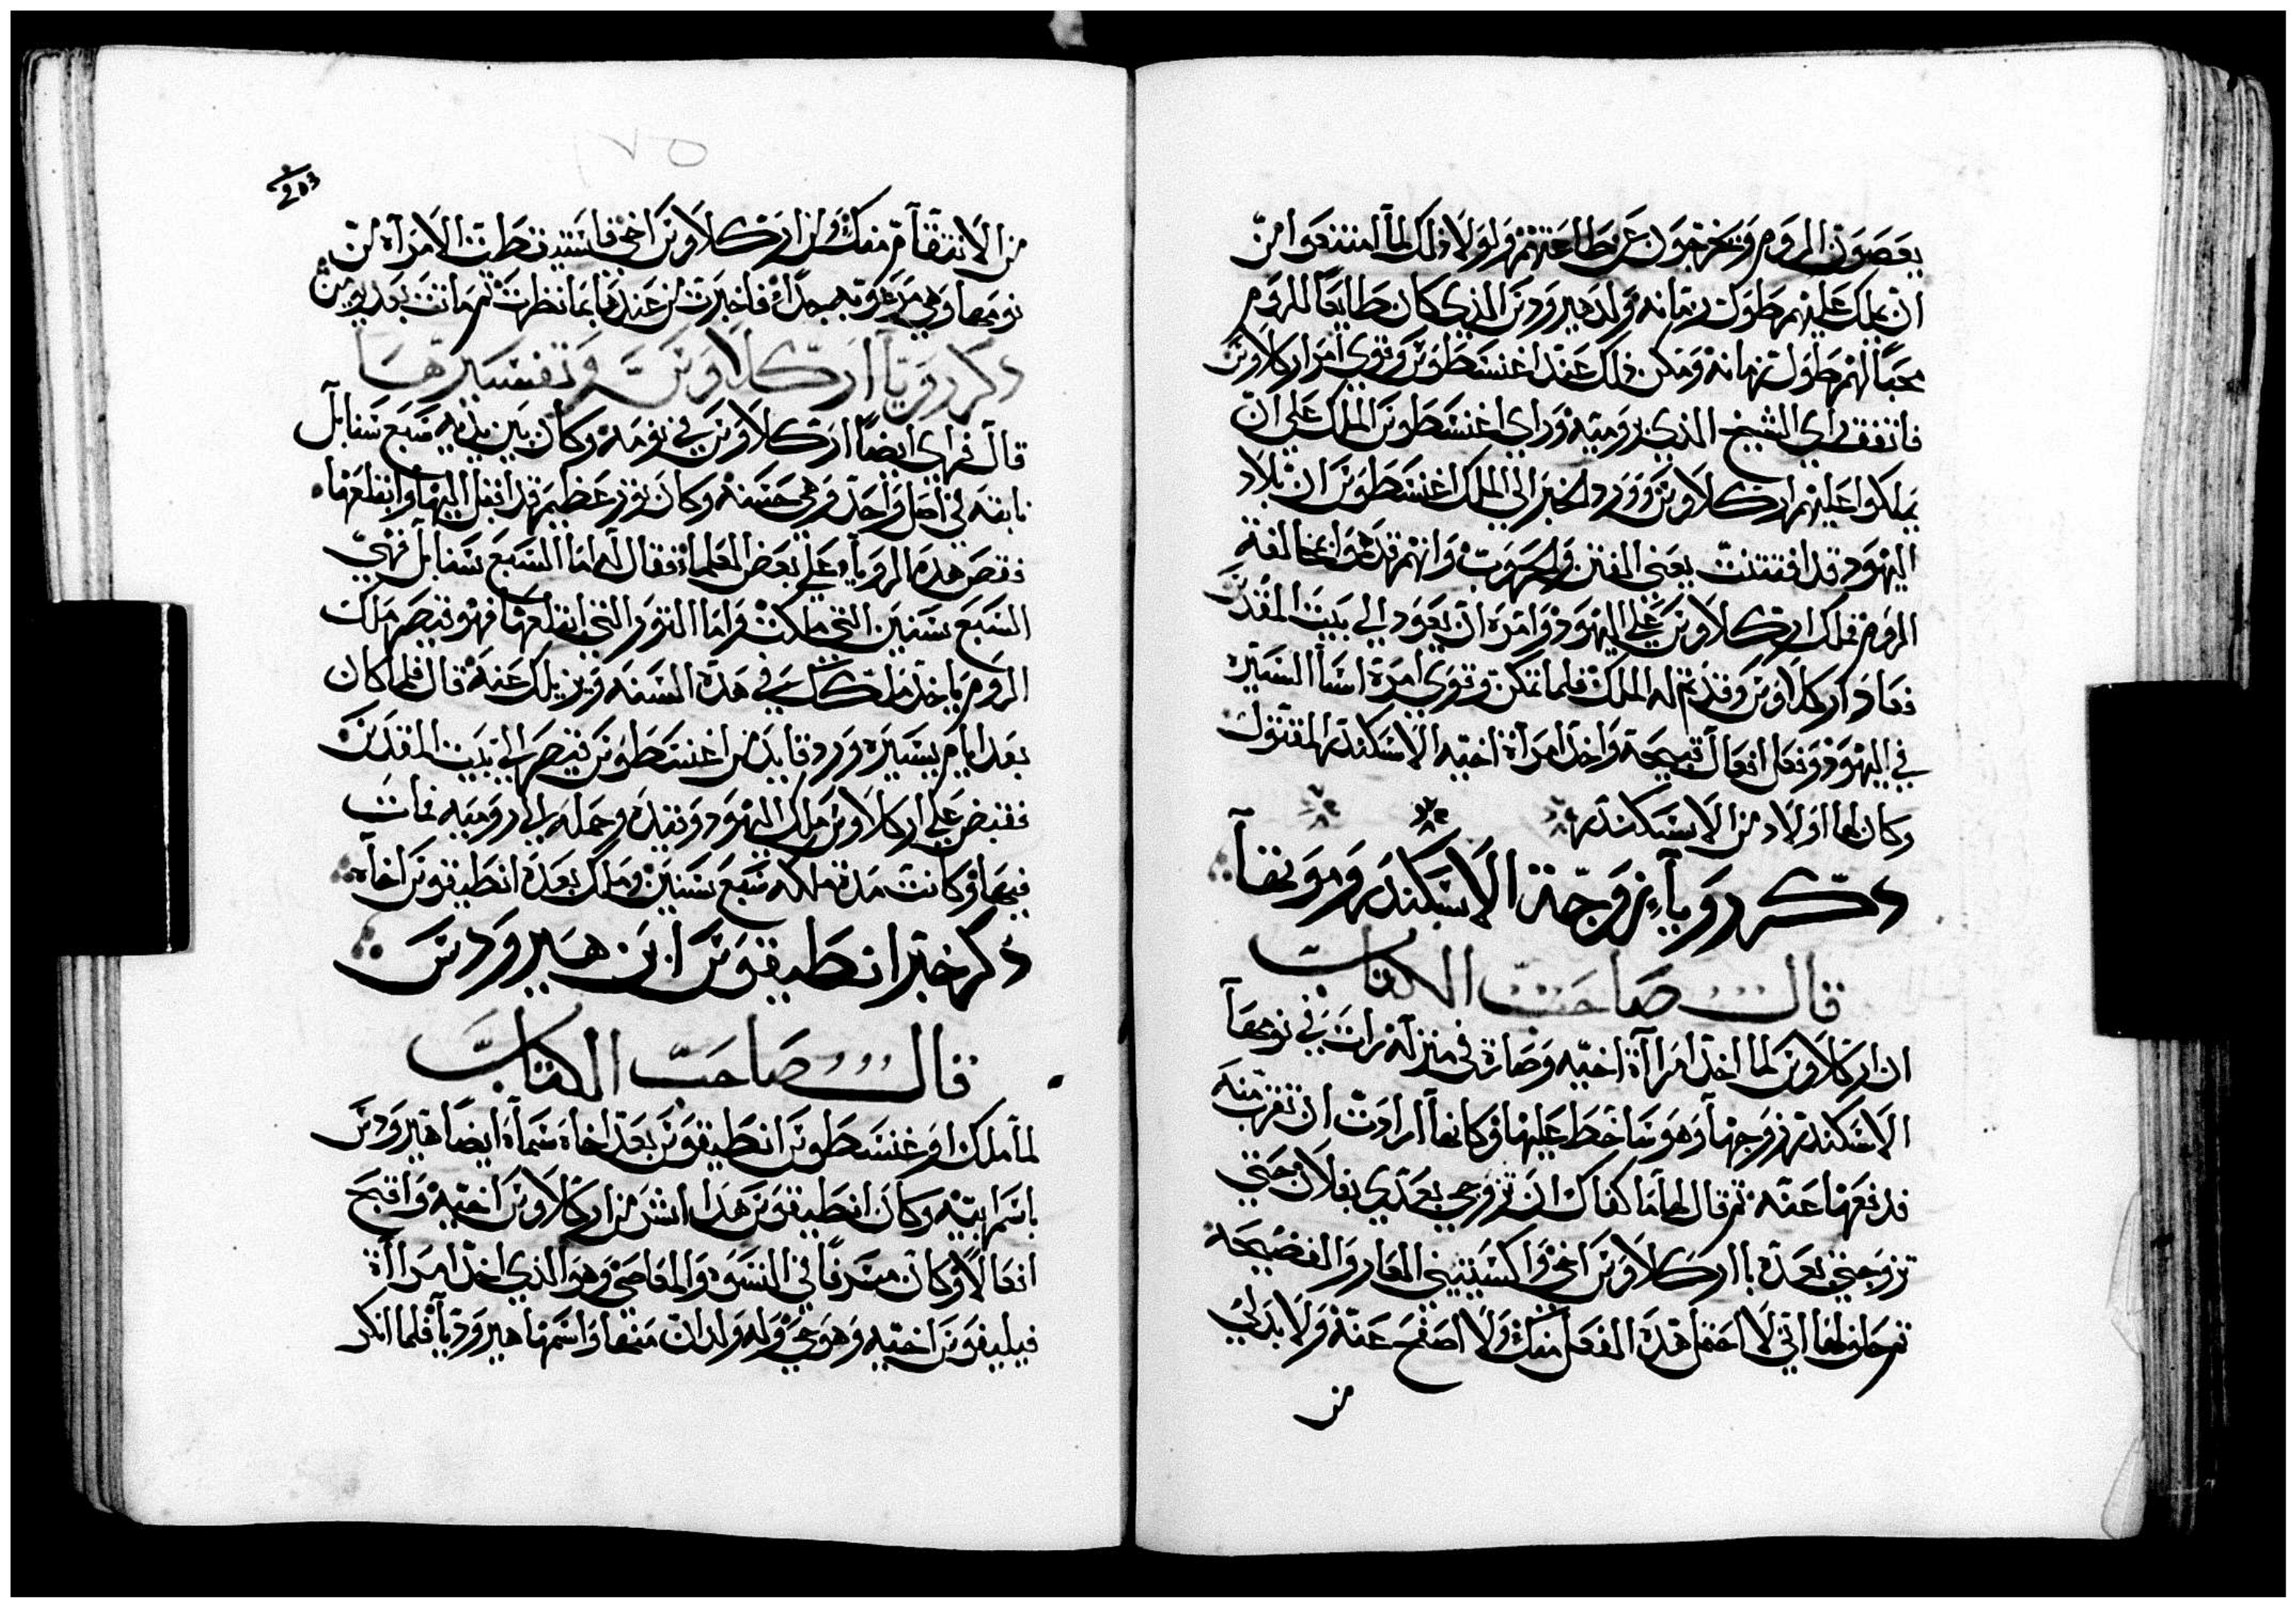 يعصون الروم ويخرجون عن طاعتهم ولولا ذلك لما امتنعوا من
ان يملك عليهم طول زمانه ولد هيرودس الذي كان طايعا للروم
محبا لهم طول زمانه ومكن ذلك عند اغنسطوس وقوي امر اركلاوس
فاتفق راي الشيخ الذي برومية وراي اغنسطوس الملك علي ان
يملكوا عليهم اركلاوس وورد الخبر الي الملك اغنسطوس ان بلاد
اليهود قد افتتنت يعني الفتن والحروب وانهم قد هموا بمخالفة
الروم فملك اركلاوس علي اليهود وامره ان يعود الي بيت المقدس
فعاد اركلاوس وقد تم له الملك فلما تمكن وقوي امره اسا السيره
في اليهود وفعل افعال قبيحة واخذ امراة اخيه الاسكندر المقتول
وكان لها اولاد من الاسكندر
ذكر رويا زوجة الاسكندر وموتها
قال صاحب الكتاب
ان اركلاوس لما اخذ امراة اخيه وصارة في منزله رات في نومها
الاسكندر زوجها وهو ساخط عليها وكانها ارادت ان تقرب منه
فدفعها عنه ثم قال لها ما كفاك ان تزوجي بعدي بفلان حتي
تزوجتي بعده باركلاوس اخي واكسيتيني العار والفضيحه
اني لا احتمل هذه الفعل منك ولا اصفح عنه ولا بد لي
من
203
٢٧٥
من الانتقام منك ومن اركلاوس اخي فاستيقظت الامراة من
نومها وهي مرعوبه جدا فاخبرت من عندها بما نظرت ثم ماتت بعد يومين
ذكر رويا اركلاوس وتفسيرها
قال فراي ايضا اركلاوس في نومه وكان بين يديه سبع سنابل
نابته في اصل واحد وهي حسنه وكان ثور عظيم قد اقبل اليها وابتلعها
فقص هذه الرويا علي بعض العلما فقال له اما السبع سنابل فهي
السبع سنين التي ملكت واما الثور التي ابتلعها فهو قيصر ملك
الروم ياخذ ملكك في هذه السنه ويزيلك عنه قال فلما كان
بعد ايام يسيره ورد قايد من اغنسطوس قيصر الي بيت المقدس
فقبض علي اركلاوس ملك اليهود وقيده وحمله الي روميه فمات
فيها وكانت مدة ملكه سبع سنين وملك بعده انطيقوس اخاه
ذكر خبر انطيقوس ابن هيرودس
قال صاحب الكتاب
لما ملك اوغنسطوس انطيقوس بعد اخاه سماه ايضا هيرودس
باسم ابيه وكان انطيقوس هذا اشر من اركلاوس اخيه واقبح
افعالا وكان مسرفا في الفسق والمعاصي وهو الذي اخذ امراة
فيليفوس اخيه وهو حي وله ولدان منها واسمها هيروديا فلما انكر